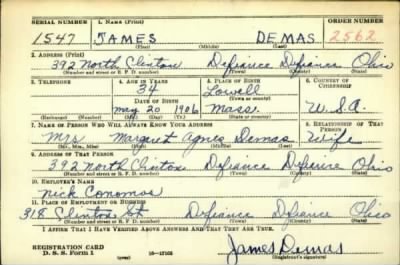 SERIAL NUMBER 1. NAME (Print) ORDER NUMBER
1547 JAMES DEMAS 2562
(First) (Middle) (Last)
2. ADDRESS (Print)
392 North Clinton Defiance Defiance Ohio
(Number and street or R. F. D. number) (Town) (County) (State)
3. TELEPHONE 4. AGE IN YEARS 5. PLACE OF BIRTH 6. COUNTRY OF CITIZENSHIP
34 Lowell
DATE OF BIRTH (Town or county)
May 20 1906 Mass. U.S.A.
(Exchange) (Number) (Mo.) (Day) (Yr.) (State or country)
7. NAME OF PERSON WHO WILL ALWAYS KNOW YOUR ADDRESS 8. RELATIONSHIP OF THAT PERSON
Mrs Margaret Agnes Demas Wife
(Mr., Mrs., Miss) (First) (Middle) (Last)
9. ADDRESS OF THAT PERSON
392 North Clinton Defiance Defiance Ohio
(Number and street or R. F. D. number) (Town) (County) (State)
10. EMPLOYER'S NAME
Nick
11. PLACE OF EMPLOYMENT OR BUSINESS
318 Clinton St Defiance Defiance Ohio
(Number and street or R. F. D. number) (Town) (County) (State)
I AFFIRM THAT I HAVE VERIFIED ABOVE ANSWERS AND THAT THEY ARE TRUE.
REGISTRATION CARD
D. S. S. Form 1 James Demas
(Registrant's signature)